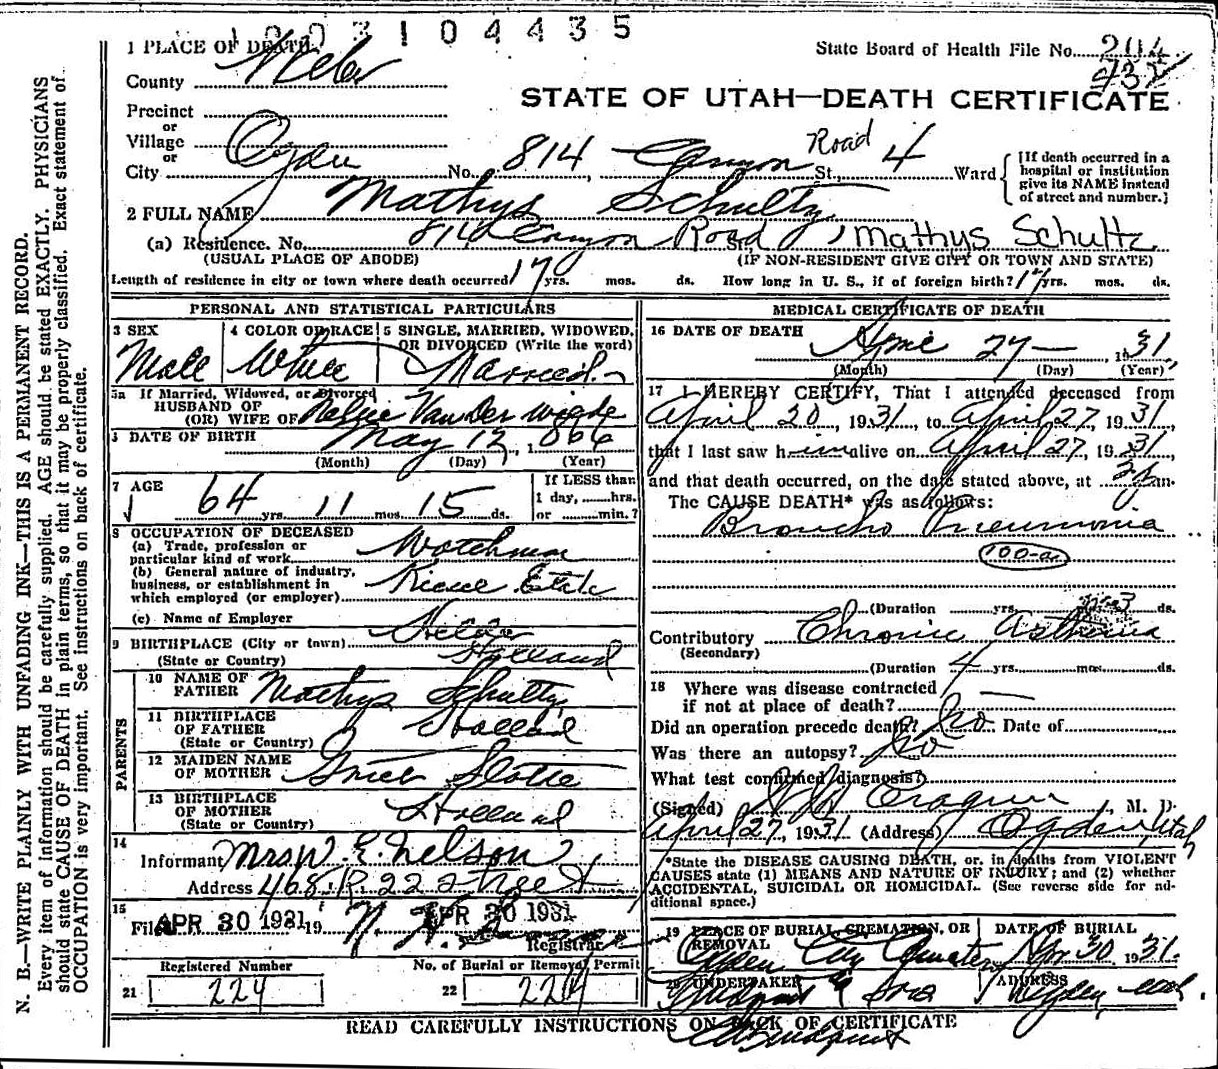 1003104435
1 PLACE OF DEATH
State Board of Health File No. 204
432
County Weber
STATE OF UTAH—DEATH CERTIFICATE
Precinct
or
Village
or
City Ogden No. 814 Canyon Road St., 4 Ward
[If death occurred in a hospital or institution give its NAME instead of street and number.]
2 FULL NAME Mathys Schultz
(a) Residence. No. 814 Canyon Road Mathys Schultz
(USUAL PLACE OF ABODE) (IF NON-RESIDENT GIVE CITY OR TOWN AND STATE)
Length of residence in city or town where death occurred 17 yrs. mos. ds. How long in U. S., if of foreign birth? 17 yrs. mos. ds.
PERSONAL AND STATISTICAL PARTICULARS
3 SEX Male
4 COLOR OR RACE White
5 SINGLE, MARRIED, WIDOWED, OR DIVORCED (Write the word) Married
5a If Married, Widowed, or Divorced
HUSBAND OF
(OR) WIFE OF Nellie Van der
6 DATE OF BIRTH May 12, 1866
(Month) (Day) (Year)
7 AGE 64 yrs. 11 mos. 15 ds.
If LESS than
1 day, ......hrs.
or ........min.?
8 OCCUPATION OF DECEASED
(a) Trade, profession or
particular kind of work Watchman
(b) General nature of industry,
business, or establishment in
which employed (or employer) Estate
(c) Name of Employer
9 BIRTHPLACE (City or town)
(State or Country) Holland
PARENTS
10 NAME OF FATHER Mathys Schultz
11 BIRTHPLACE OF FATHER (State or Country) Holland
12 MAIDEN NAME OF MOTHER
13 BIRTHPLACE OF MOTHER (State or Country) Holland
14 Informant Mrs W. E. Nelson
Address 468 R. 22 street
15 Filed APR 30 1931 19 APR 30 1931
Registrar
Registered Number
21 224
No. of Burial or Removal Permit
22 224
MEDICAL CERTIFICATE OF DEATH
16 DATE OF DEATH April 27 — , 1931
(Month) (Day) (Year)
17 I HEREBY CERTIFY, That I attended deceased from
April 20, 1931, to April 27, 1931
that I last saw him alive on April 27, 1931
and that death occurred, on the date stated above, at m.
The CAUSE DEATH* was as follows:
Broncho Pneumonia
100-a
(Duration yrs. mos. 3 ds.
Contributory Chronic Asthma
(Secondary)
(Duration 4 yrs. mos. ds.
18 Where was disease contracted
if not at place of death? —
Did an operation precede death? No Date of
Was there an autopsy? No
What test confirmed diagnosis?
(Signed) Cragun, M. D.
April 27, 1931 (Address) Ogden, Utah
*State the DISEASE CAUSING DEATH, or, in deaths from VIOLENT
CAUSES state (1) MEANS AND NATURE OF INJURY; and (2) whether
ACCIDENTAL, SUICIDAL OR HOMICIDAL. (See reverse side for ad-
ditional space.)
19 PLACE OF BURIAL, CREMATION, OR REMOVAL Ogden City Cemetery
DATE OF BURIAL Apr 30 1931.
20 UNDERTAKER Lindquist & Sons
ADDRESS Ogden Utah
READ CAREFULLY INSTRUCTIONS ON BACK OF CERTIFICATE
Lindquist
N. B.—WRITE PLAINLY WITH UNFADING INK—THIS IS A PERMANENT RECORD.
Every item of information should be carefully supplied. AGE should be stated EXACTLY. PHYSICIANS
should state CAUSE OF DEATH in plain terms, so that it may be properly classified. Exact statement of
OCCUPATION is very important. See instructions on back of certificate.